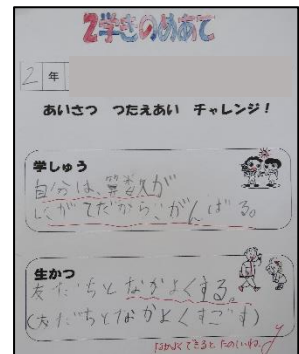 2学きのめあて
2年
あいさつ つたえあい チャレンジ!
学しゅう
自分は、算数が
にがてだから、がんばる。
生かつ
友だちとなかよくする。
(友だちとなかよくすごす)
なかよくできるとたのしいね。